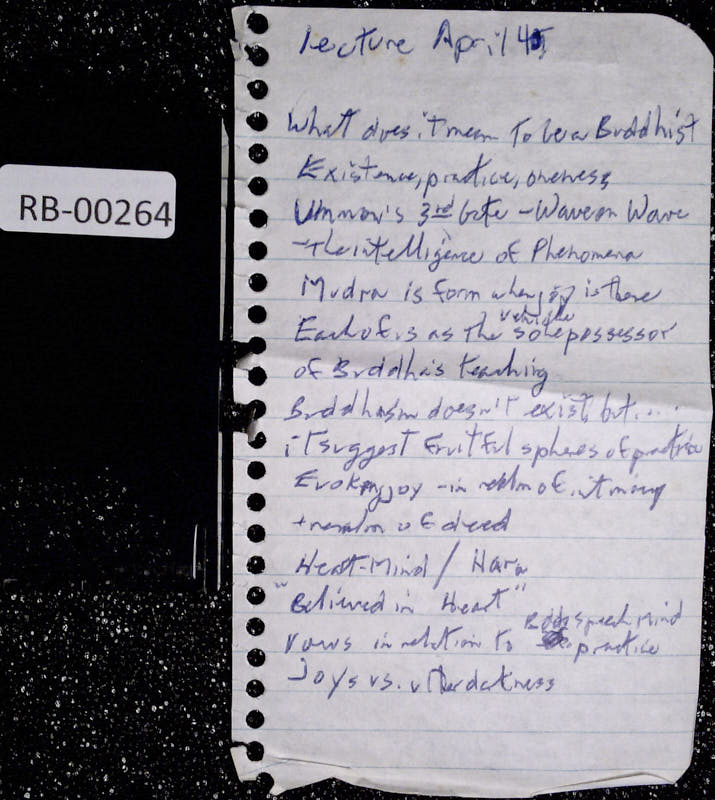 Lecture April 45
RB-00264
What does it mean to be a Buddhist
Existence, practice, oneness
Ummon's 3rd Gate - Wave on Wave
- the intelligence of Phenomena
Mudra is form when joy is there
vehicle
Each of us as the sole possessor
of Buddha's teaching
Buddhism doesn't exist, but....
it suggest fruitful spheres of practice
Evoking joy - in realm of
+ realm of deed
Heart-Mind / Hara
"Believed in Heart"
Body speech Mind
vows in relation to practice
Joys vs. utter darkness